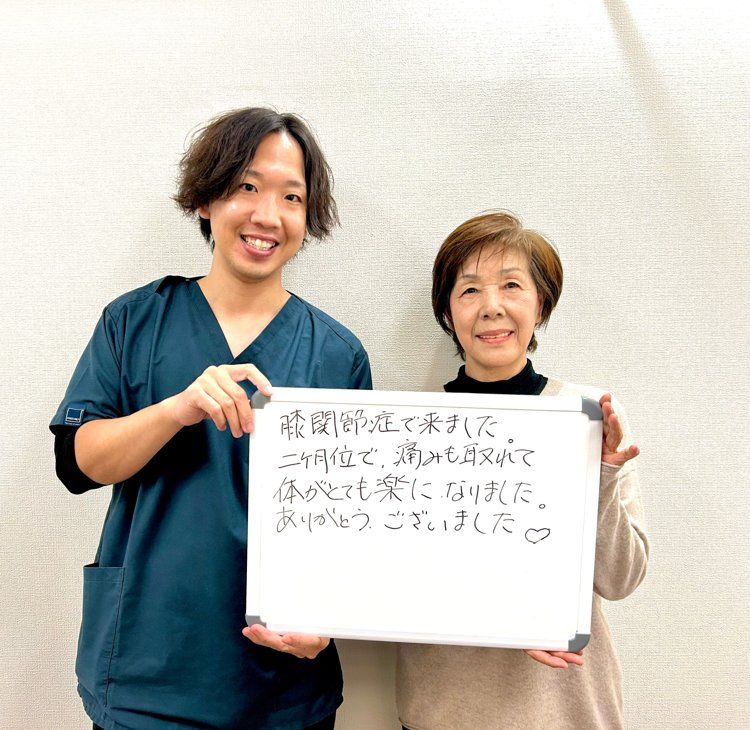 膝関節症で来ました。
二ヶ月位で、痛みも取れて
体がとても楽になりました。
ありがとう、ございました♡